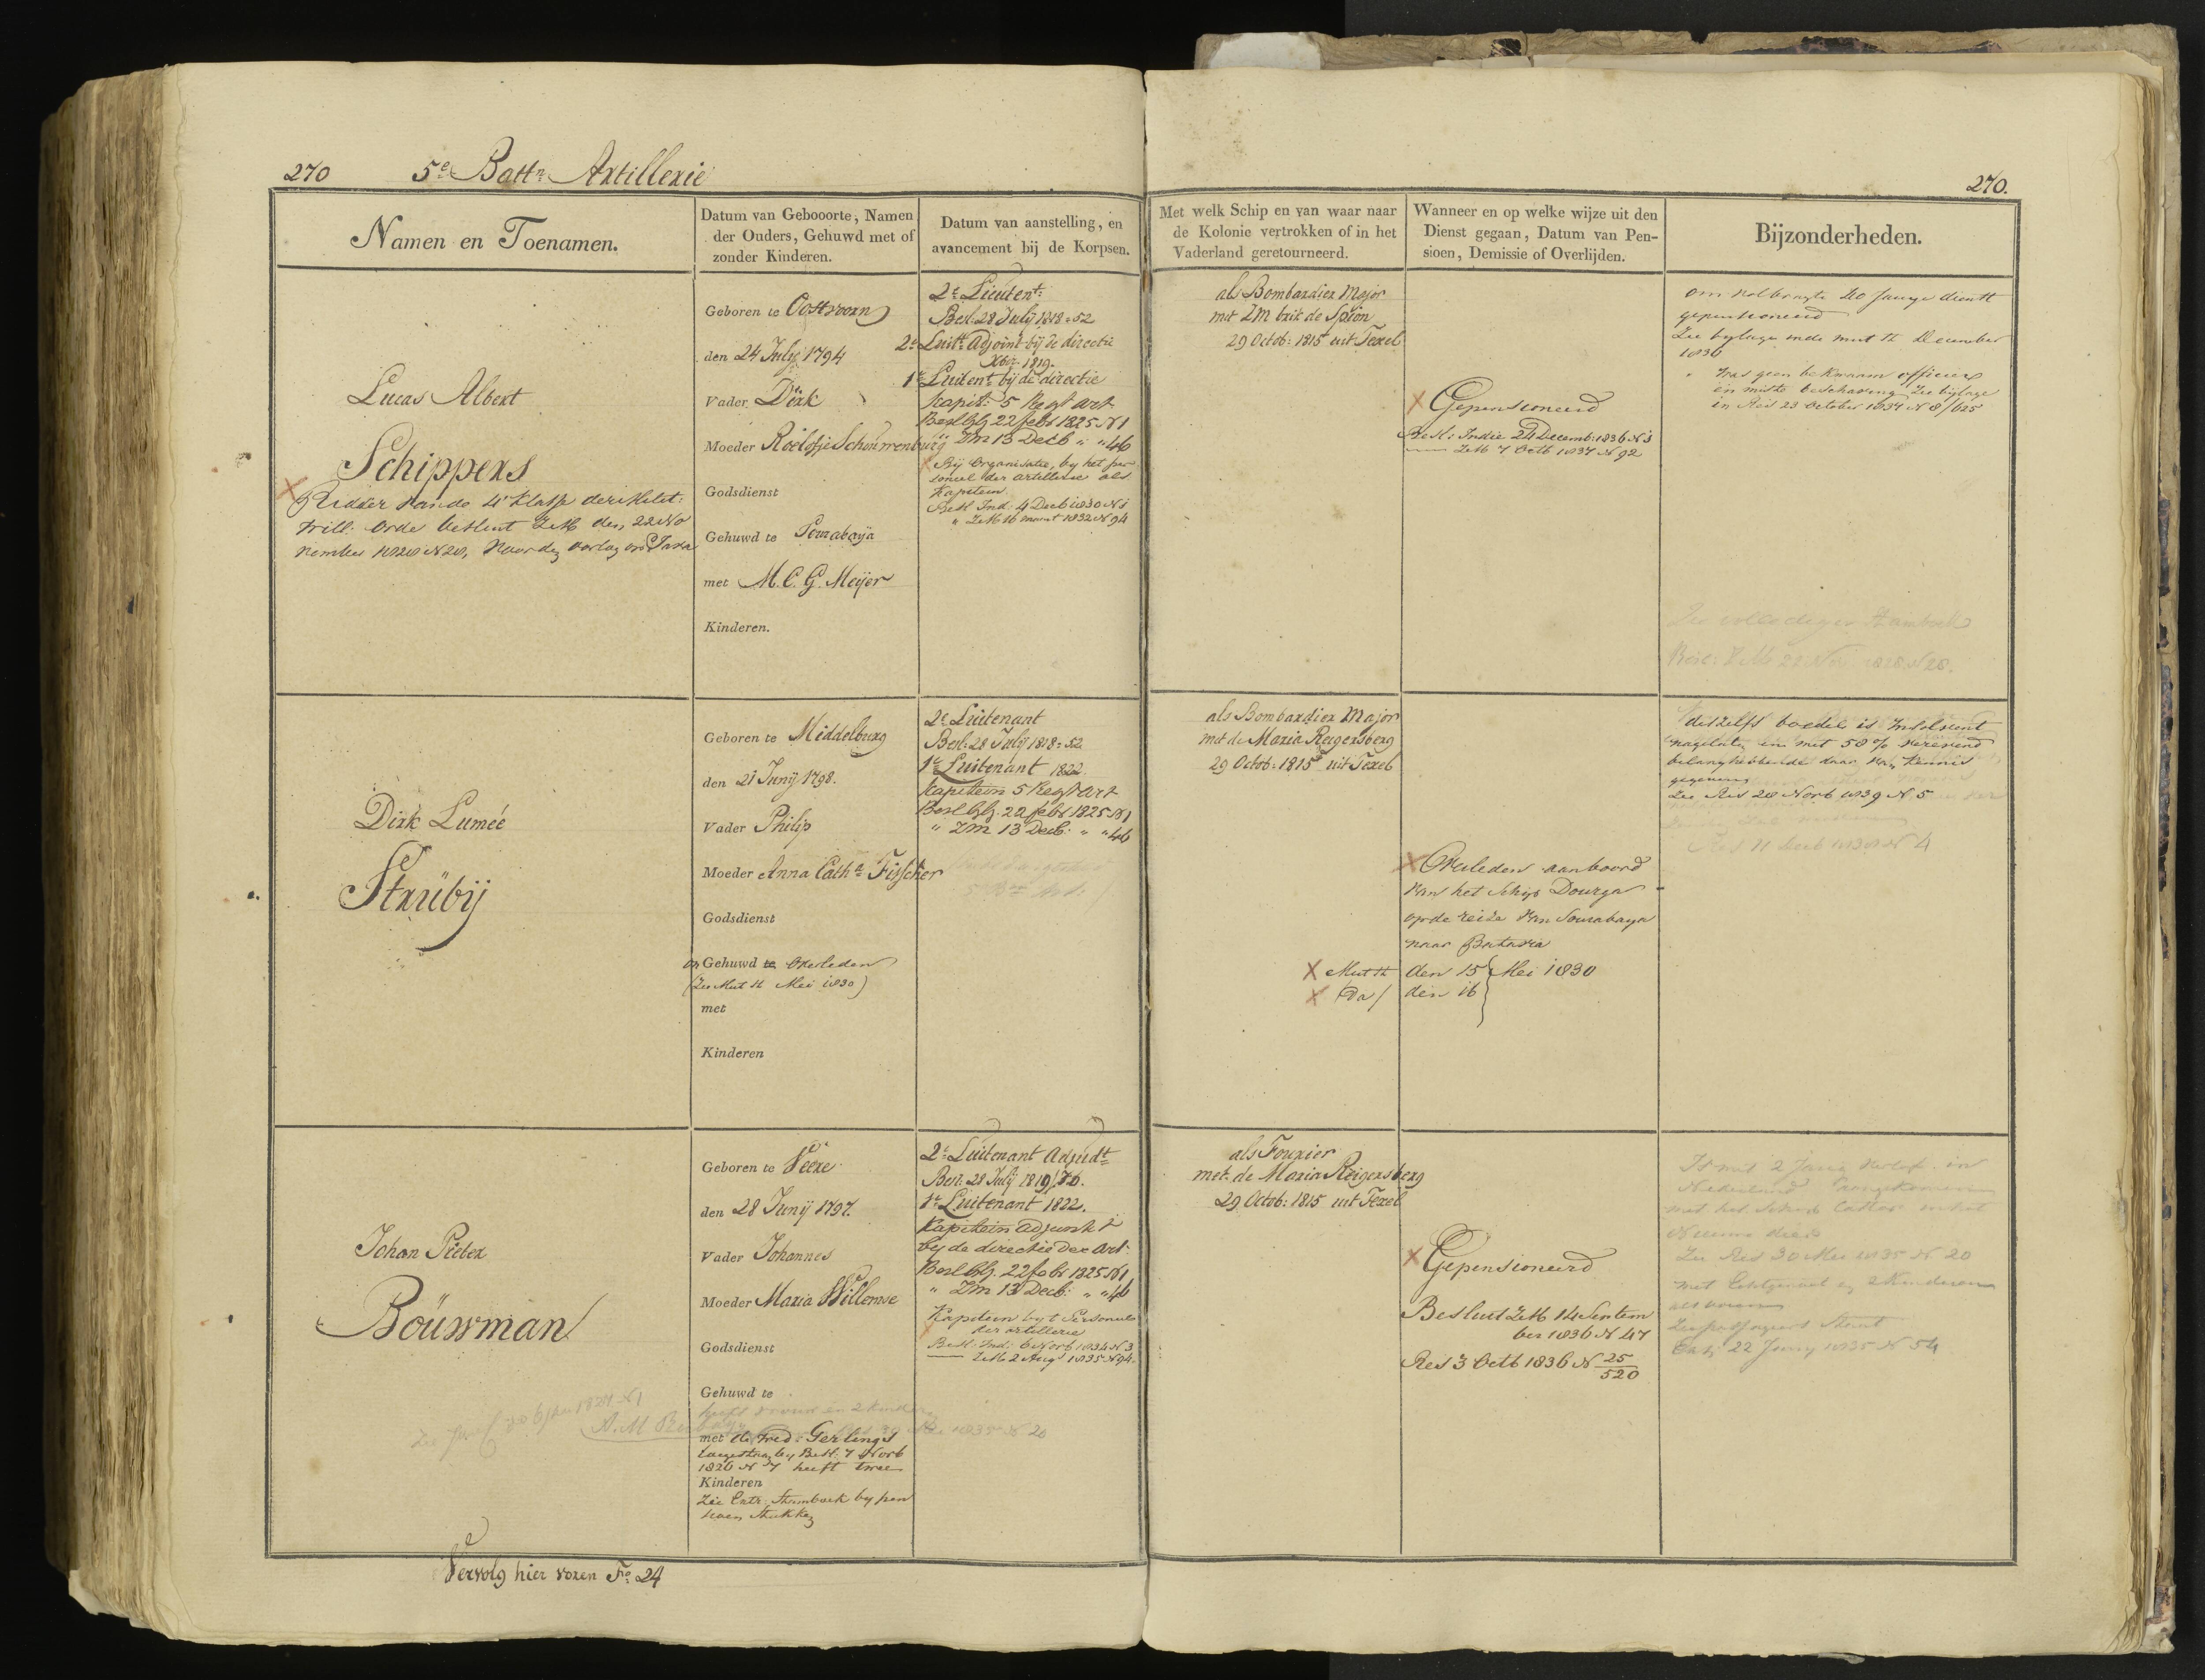 270 5e Battn Artillerie
270.
Namen en Toenamen.
Datum van Gebooorte, Namen
der Ouders, Gehuwd met of
zonder Kinderen.
Datum van aanstelling, en
avancement bij de Korpsen.
Met welk Schip en van waar naar
de Kolonie vertrokken of in het
Vaderland geretourneerd.
Wanneer en op welke wijze uit den
Dienst gegaan, Datum van Pen-
sioen, Demissie of Overlijden.
Bijzonderheden.
Lucas Albert
Schippers
Ridder van de 4e Klasse der Milit:
Will: Orde besluit ZM den 22 No
vember 1828 N 28, voor den oorlog op Java
Geboren te Oostvoorn
den 24 Julij 1794
Vader Dirk
Moeder Roelofje Schouwenburg
Godsdienst
Gehuwd te Sourabaija
met M. C. G. Meijer
Kinderen.
2e Lieutent:
Besl. 28 Julij 1818 = 52
2e Luitt Adjoint bij de directie
Xber 1819.
1e Luitent bij de directie
Kapit: 5 Regt Art
Besl bg 22 febr 1825 N 1
" ZM 13 Decb " " 46
Bij Organisatie, by het per
soneel der artillerie als
Kapitein
Besl Ind: 4 Decb 1830 N 1
" ZM 16 maart 1832 N 94
als Bombardier Major
met ZM brik de Spion
29 Octob: 1815 uit Texel
Gepensioneerd
Besl: Indie 24 Decemb: 1836 N 3
ZM 7 Octb 1837 N 92
om volbragte 20 Jarige dienst
gepensioneerd
Zie bylage inde mut n December
1836
" was geen bekwaam officier
en miste beschaving Zie bijlage
in Res 23 October 1834 N 8/625
Zie vollediger Stamboek
Besl: ZM 22 Nov 1828 N 28.
Dirk Lumée
Strübij
Geboren te Middelburg
den 21 Junij 1798.
Vader Philip
Moeder Anna Catha Fisscher
Godsdienst
Gehuwd te Overleden
(Zie Mut n Mei 1830)
met
Kinderen
2e Luitenant
Besl. 28 Julij 1818 = 52
1e Luitenant 1822.
Kapitein 5 Regt Art
Besl bg. 22 febr 1825 N 1
" ZM 13 Decb: " " 46
als Bombardier Major
met de Maria Reigersberg
29 Octob: 1815 uit Texel
Overleden aanboord
van het Schip Dourga
op de reize van Sourabaya
naar Batavia
Mut n den 15 Mei 1830
Do den 16
deszelfs boedel is Insolvent
nagelaten en met 50 %
belanghebbende daar van kennis
gegeven
Zie Res 20 Novb 1839 N 5
Res 11 Decb 1830 N 4
Johan Pieter
Boüwman
Geboren te Veere
den 28 Junij 1797.
Vader Johannes
Moeder Maria Willemse
Godsdienst
Gehuwd te
heeft vrouw en 2 kinderen
met A. Fred: Gerlings
toegestaan by Besl: 7 Novb
1826 N 7 heeft twee
Kinderen
Zie Extr: Stamboek by pen
sioen Stukken
2e Luitenant Adjudt
Besl. 28 Julij 1819/70.
1e Luitenant 1822.
Kapitein Adjunkt
by de directie der Art:
Besl bg. 22 febr 1825 N 1
" ZM 13 Decb: " " 46
Kapitein by t Personeel
der artillerie
Besl: Ind: 6 Novb 1834 N 3
ZM 2 Aug 1835 N 94.
als Fourier
met de Maria Reigersberg
29 Octob: 1815 uit Texel
Gepensioneerd
Besluit ZM 14 Septem
ber 1836 N 47
Res 3 Octb 1836 N 25/520
Is met 2 Jarig verlof in
Nederland aangekomen
met het Schip Castor in het
Nieuwe diep
Zie Res 30 Mei 1835 N 20
met Echtgenoot en 2 Kinderen
Zie passagiers Staat
22 Juny 1835 N 54
Vervolg hier voren Fo 24